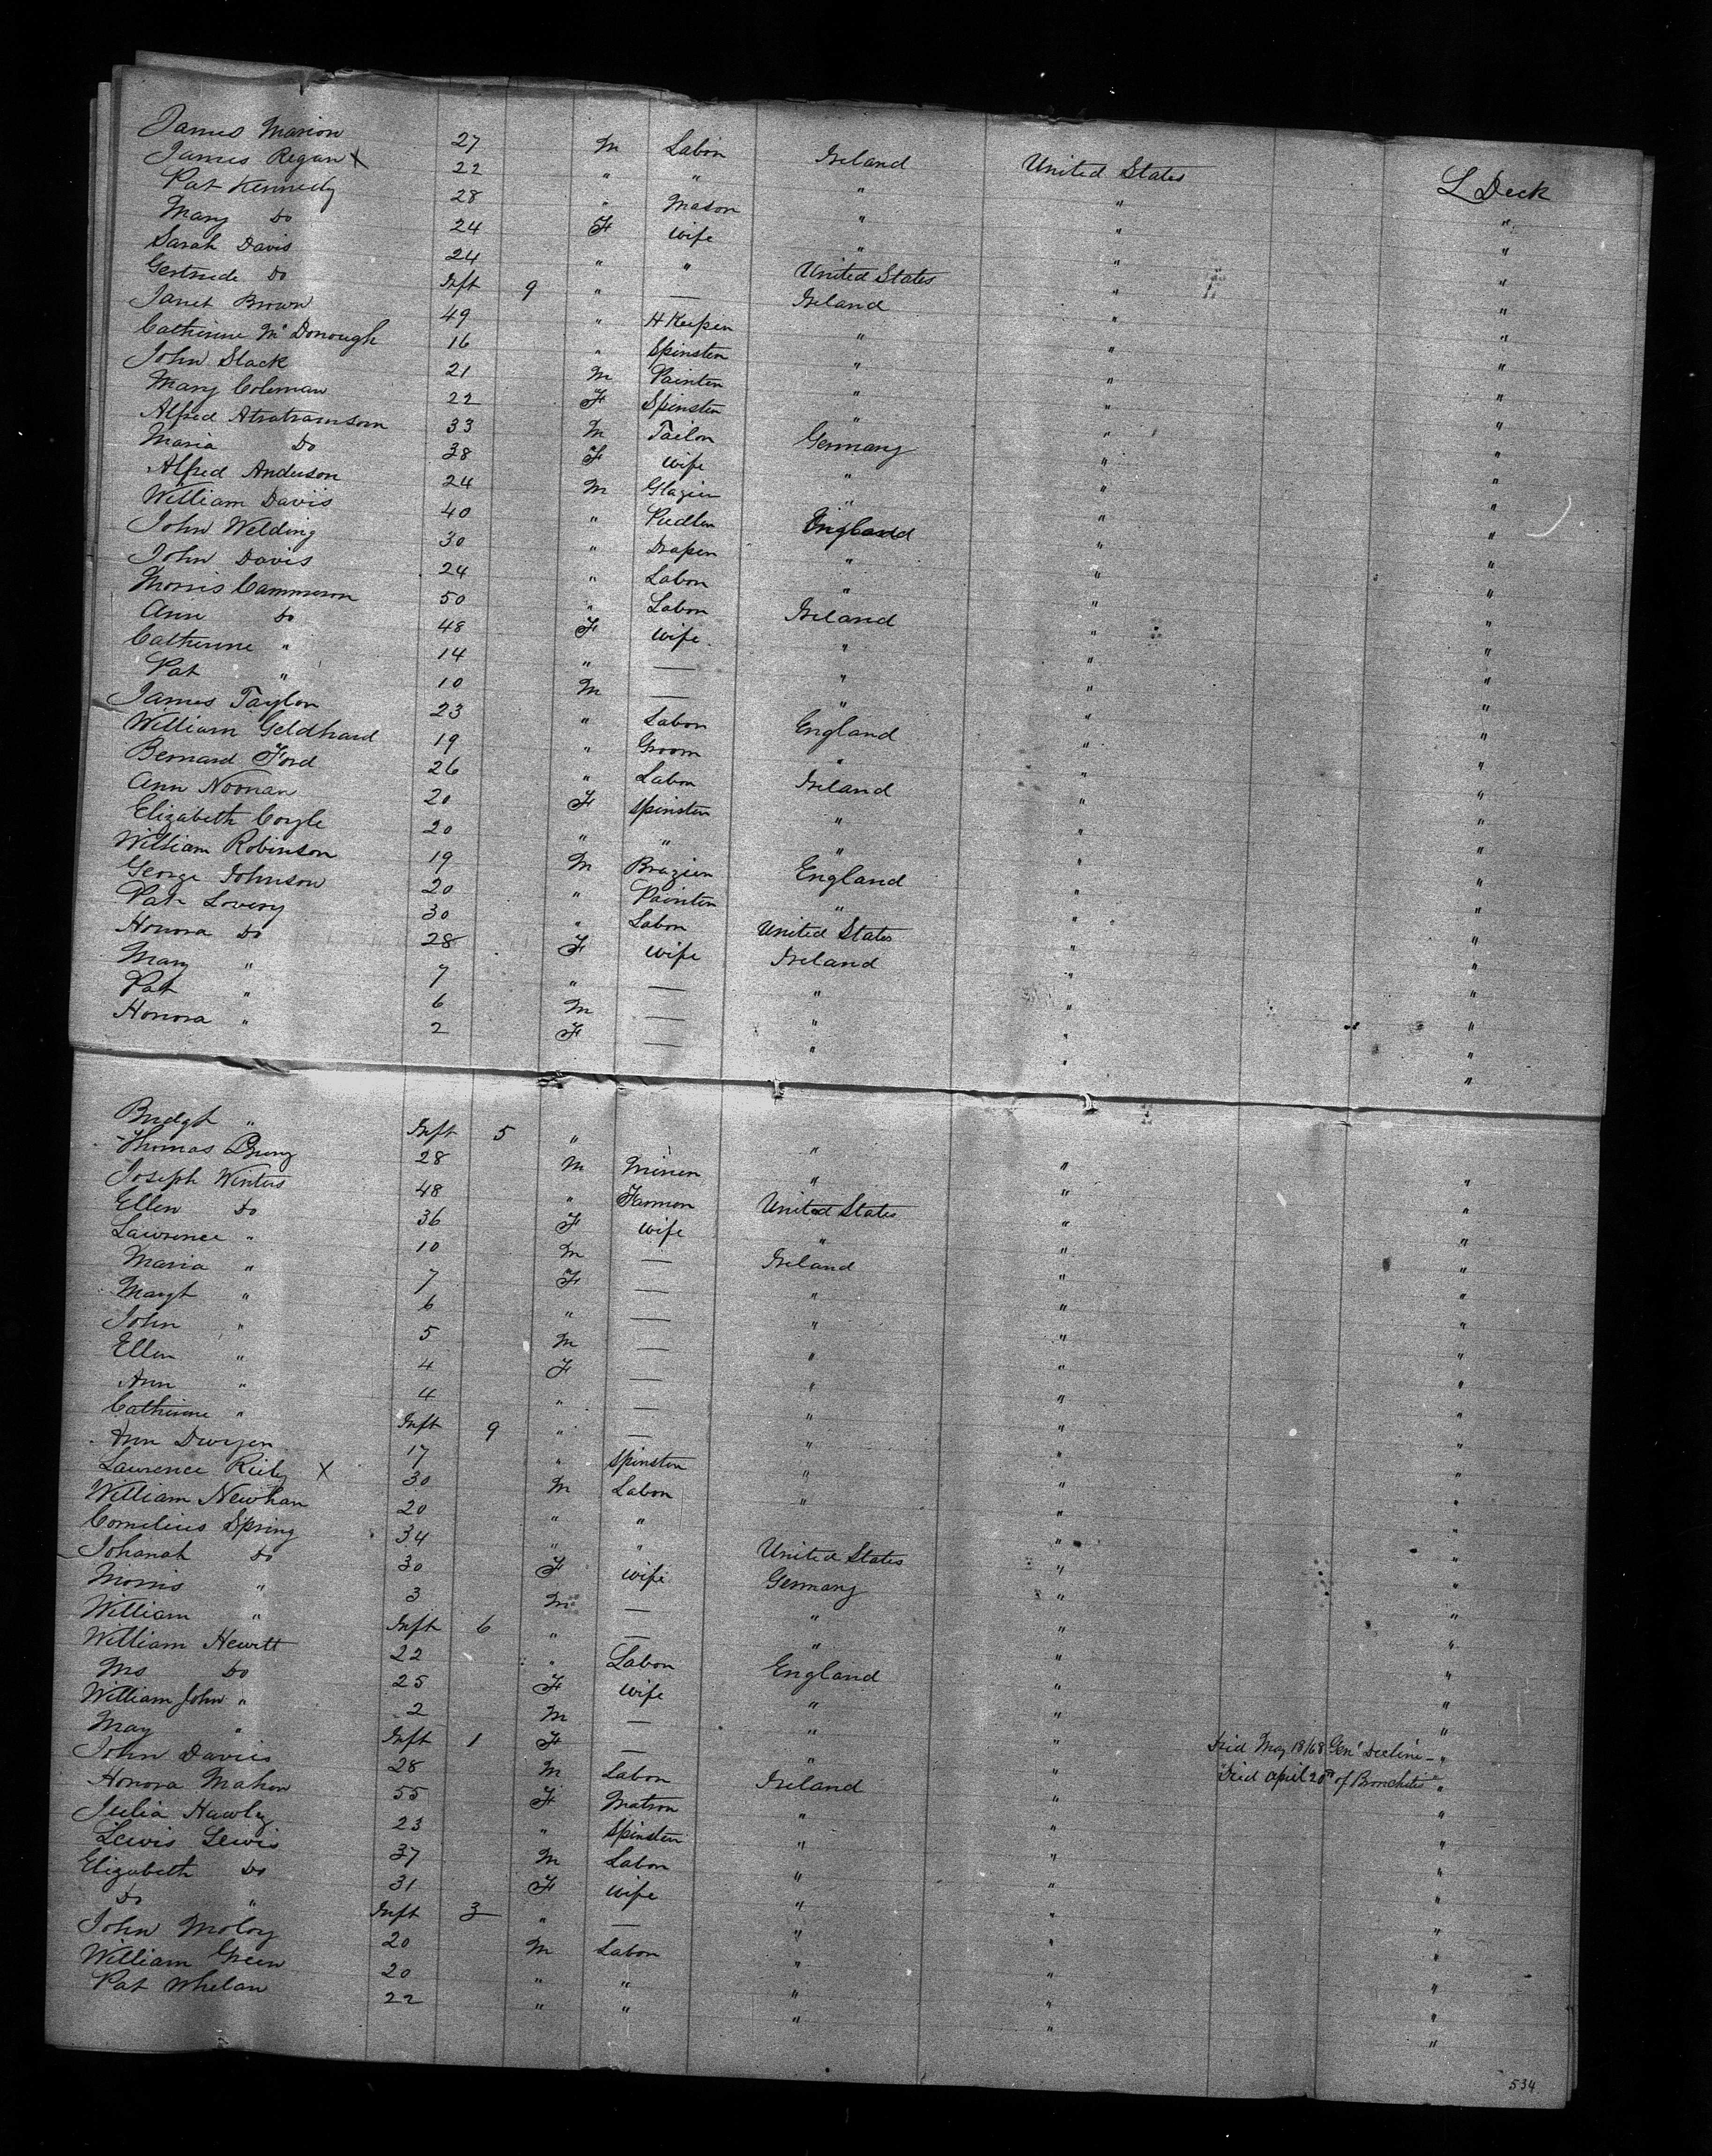 James Marion 27 M Labor Ireland United States L Deck
James Regan X 22 " " " " "
Pat Kennedy 28 " Mason " " "
Mary Do 24 F Wife " " "
Sarah Davis 24 " " United States " "
Gertrude Do Inft 9 " — Ireland " "
Janet Brown 49 " H Keeper " " "
Catherine McDonough 16 " Spinster " " "
John Slack 21 M Painter " " "
Mary Coleman 22 F Spinster " " "
Alfred 33 M Tailor Germany " "
Maria Do 38 F Wife " " "
Alfred Anderson 24 M Glazier " " "
William Davis 40 " Pedler England " "
John Welding 30 " Draper " " "
John Davis 24 " Labor " " "
Morris Cammeron 50 " Labor Ireland " "
Ann Do 48 F Wife " " "
Catherine " 14 " — " " "
Pat " 10 M — " " "
James Taylor 23 " Labor England " "
William Geldhard 19 " Groom " " "
Bernard Ford 26 " Labor Ireland " "
Ann Noonan 20 F Spinster " " "
Elizabeth Coyle 20 " " " " "
William Robinson 19 M Brazier England " "
George Johnson 20 " Painter " " "
Pat Lovery 30 " Labor United States " "
Honora Do 28 F Wife Ireland " "
Mary " 7 " — " " "
Pat " 6 M — " " "
Honora " 2 F — " " "
Bridgt " Inft 5 " " " "
Thomas 28 M Miner " " "
Joseph Winters 48 " Farmor United States " "
Ellen Do 36 F Wife " " "
Lawrence " 10 M — Ireland " "
Maria " 7 F — " " "
Margt " 6 " — " " "
John " 5 M — " " "
Ellen " 4 F — " " "
Ann " 4 " — " " "
Catherine " Inft 9 " — " " "
Ann Dwyer 17 " Spinster " " "
Lawrence Riely X 30 M Labor " " "
William Newhan 20 " " " "
Cornelius Spring 34 " " United States " "
Johanah Do 30 F Wife Germany " "
Morris " 3 M — " " "
William " Inft 6 " — " " "
William Hewitt 22 " Labor England " "
Ms Do 25 F Wife " " "
William John " 2 M — " " "
May " Inft 1 F — " " Died May 18/68 Genl Decline — "
John Davis 28 M Labor Ireland " Died April 20th of Bronchitis "
Honora Mahon 55 F Matron " " "
Julia Hawly 23 " Spinster " " "
Lewis Lewis 37 M Labor " " "
Elizabeth Do 31 F Wife " " "
Do " Inft 3 " — " " "
John Moloy 20 M Labor " " "
William Green 20 " " " " "
Pat Whelan 22 " " " " "
534